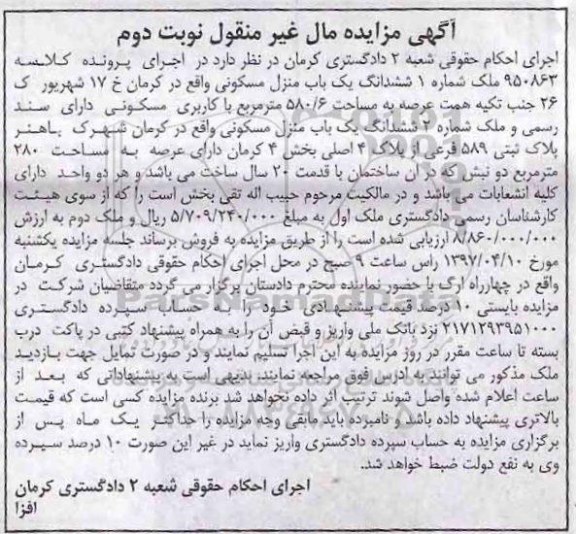 آگهی مزایده مال غیر منقول نوبت دوم
اجرای احکام حقوقی شعبه ۲ دادگستری کرمان در نظر دارد در اجرای پرونده کلاسه
۹۵۰۸۶۳ ملک شماره ۱ ششدانگ یک باب منزل مسکونی واقع در کرمان خ ۱۷ شهریور ک
۲۶ جنب تکیه همت عرصه به مساحت ۵۸۰/۶ مترمربع با کاربری مسکونی دارای سند
رسمی و ملک شماره ۲ ششدانگ یک باب منزل مسکونی واقع در کرمان شهرک باهنر
پلاک ثبتی ۵۸۹ فرعی از پلاک ۴ اصلی بخش ۴ کرمان دارای عرصه به مساحت ۲۸۰
مترمربع دو نبش که در آن ساختمان با قدمت ۲۰ سال ساخت می باشد و هر دو واحد دارای
کلیه انشعابات می باشد و در مالکیت مرحوم حبیب اله تقی بخش است را که از سوی هیئت
کارشناسان رسمی دادگستری ملک اول به مبلغ ۵/۷۰۹/۲۴۰/۰۰۰ ریال و ملک دوم به ارزش
۸/۸۶۰/۰۰۰/۰۰۰ ارزیابی شده است را از طریق مزایده به فروش برساند جلسه مزایده یکشنبه
مورخ ۱۳۹۷/۰۴/۱۰ راس ساعت ۹ صبح در محل اجرای احکام حقوقی دادگستری کرمان
واقع در چهارراه ارگ با حضور نماینده محترم دادستان برگزار می گردد متقاضیان شرکت در
مزایده بایستی ۱۰ درصد قیمت پیشنهادی خود را به حساب سپرده دادگستری
۲۱۷۱۲۹۳۹۵۱۰۰۰ نزد بانک ملی واریز و قبض آن را به همراه پیشنهاد کتبی در پاکت درب
بسته تا ساعت مقرر در روز مزایده به این اجرا تسلیم نمایند و در صورت تمایل جهت بازدید
ملک مذکور می توانند به ادرس فوق مراجعه نمایند، بدیهی است به پیشنهاداتی که بعد از
ساعت اعلام شده واصل شوند ترتیب اثر داده نخواهد شد برنده مزایده کسی است که قیمت
بالاتری پیشنهاد داده باشد و نامبرده باید مابقی وجه مزایده را حداکثر یک ماه پس از
برگزاری مزایده به حساب سپرده دادگستری واریز نماید در غیر این صورت ۱۰ درصد سپرده
وی به نفع دولت ضبط خواهد شد.
اجرای احکام حقوقی شعبه ۲ دادگستری کرمان
افزا
ParsNamadData